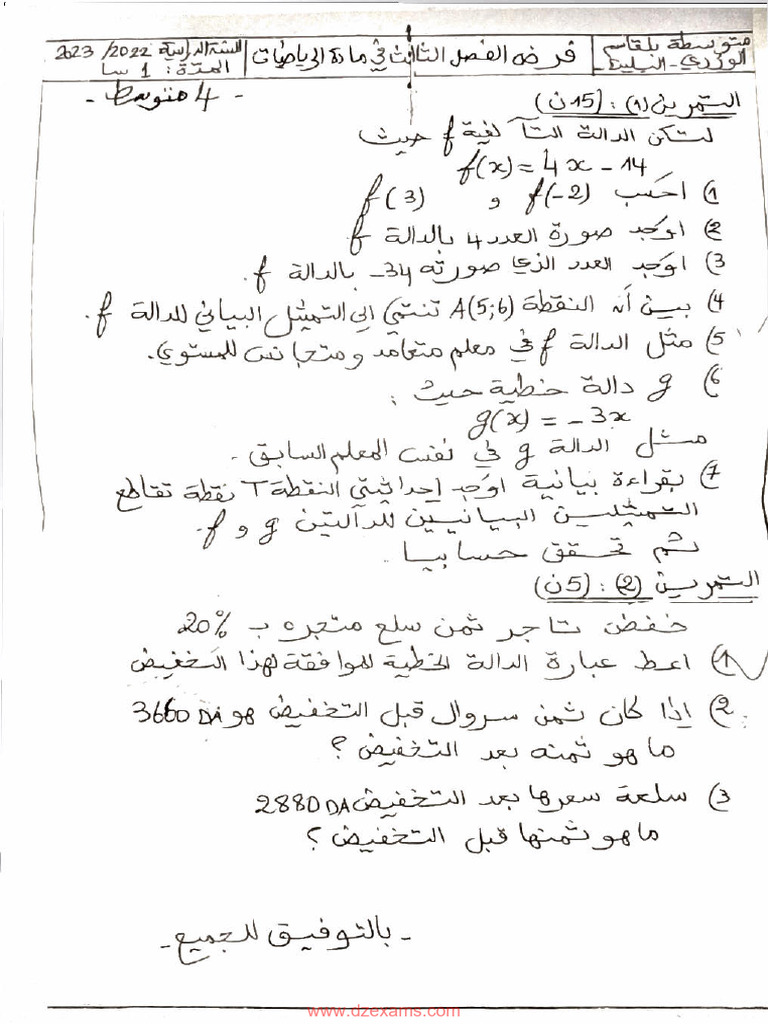 متوسطة بلقاسم
الوزري - البليدة -
فرض الفصل الثالث في مادة الرياضيات
السنة الدراسية 2022/2023
المدة: 1 سا
- 4 متوسط -
التمرين (1): (15ن)
لتكن الدالة التآلفية f حيث
f(x) = 4x - 14
1) احسب f(-2) و f(3)
2) اوجد صورة العدد 4 بالدالة f
3) اوجد العدد الذي صورته 34- بالدالة f.
4) بين أن النقطة A(5;6) تنتمي الى التمثيل البياني للدالة f.
5) مثل الدالة f في معلم متعامد و متجانس للمستوي.
6) g دالة خطية حيث:
g(x) = -3x
مثل الدالة g في نفس المعلم السابق.
7) بقراءة بيانية اوجد إحداثيتي النقطة T نقطة تقاطع
التمثيلين البيانيين للدالتين g و f.
ثم تحقق حسابيا.
التمرين (2): (5ن)
خفض تاجر ثمن سلع متجره بـ 20%
1) اعط عبارة الدالة الخطية الموافقة لهذا التخفيض
2) إذا كان ثمن سروال قبل التخفيض هو DA
ما هو ثمنه بعد التخفيض؟
3) سلعة سعرها بعد التخفيض 2880DA
ما هو ثمنها قبل التخفيض؟
- بالتوفيق للجميع -
www.dzexams.com